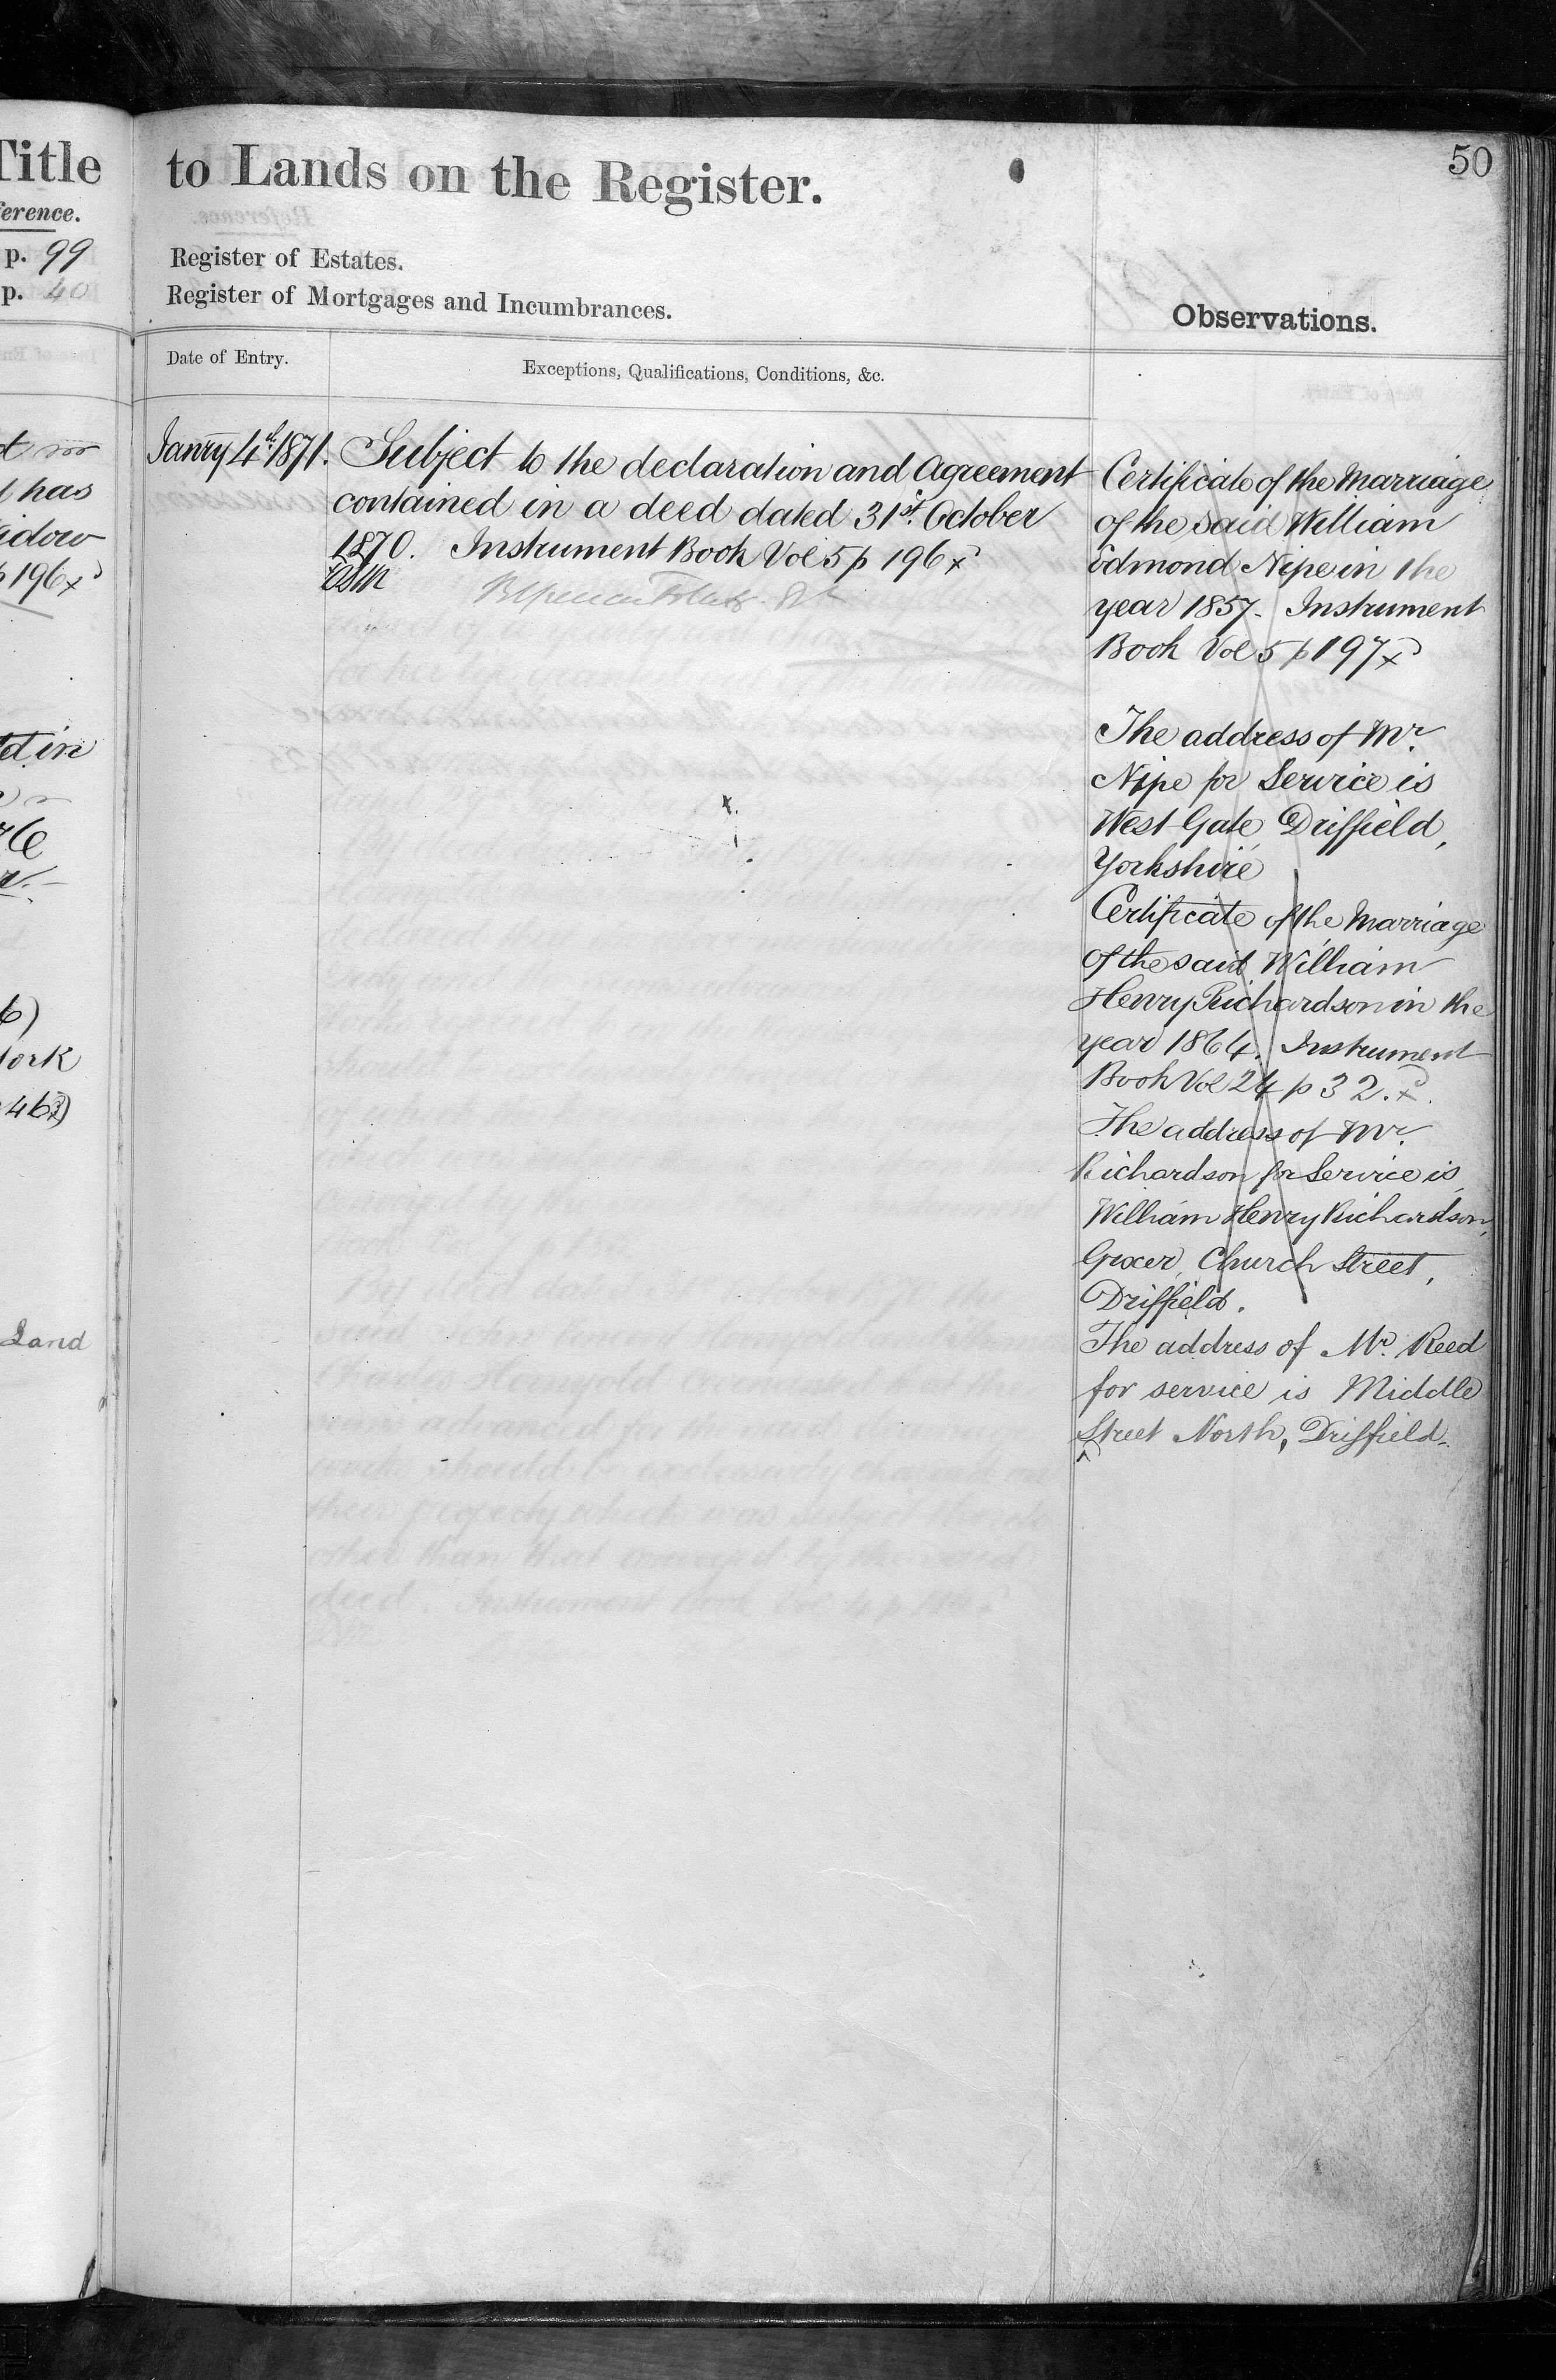 Title
ference.
p. 99
p. 40
has
idow
p 196x
ed in
6)
York
Land
to Lands on the Register.
50
Register of Estates.
Register of Mortgages and Incumbrances.
Observations.
Date of Entry.
Exceptions, Qualifications, Conditions, &c.
Janry 4th 1871.
Subject to the declaration and Agreement
contained in a deed dated 31st October
1870. Instrument Book Vol 5 p 196x
Certificate of the Marriage
of the said William
Edmond Nipe in the
year 1857. Instrument
Book Vol 5 p 197x
The address of Mr.
Nipe for Service is
West Gate, Driffield,
Yorkshire
Certificate of the Marriage
of the said William
Henry Richardson in the
year 1864. Instrument
Book Vol 24 p 32.x
The address of Mr.
Richardson for Service is
William Henry Richardson,
Grocer, Church Street,
Driffield.
The address of Mr. Reed
for service is Middle
Street North, Driffield.